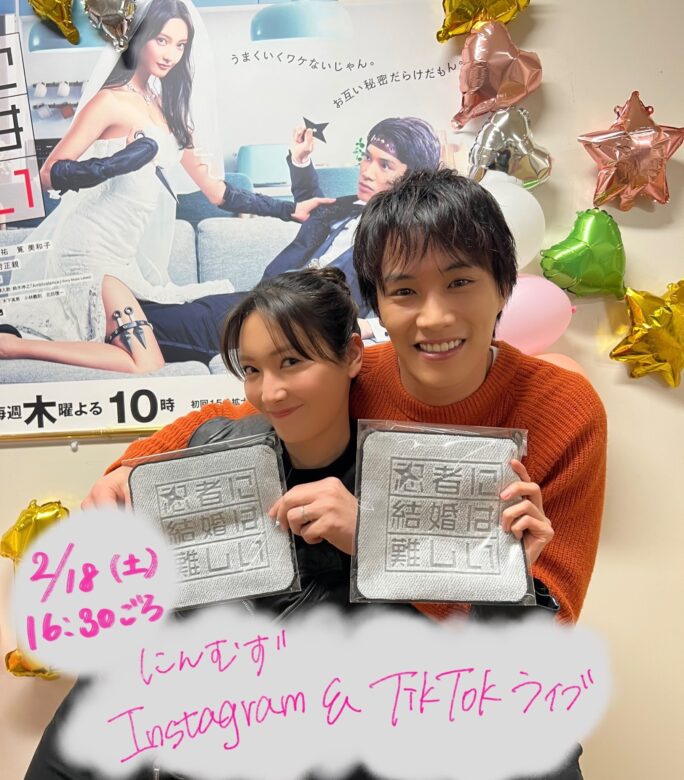 うまくいくワケないじゃん。
お互い秘密だらけだもん。
毎週木曜よる10時
忍者に
結婚は
難しい
忍者に
結婚は
難しい
2/18(土)
16:30ごろ
にんむず
Instagram & TikTokライブ